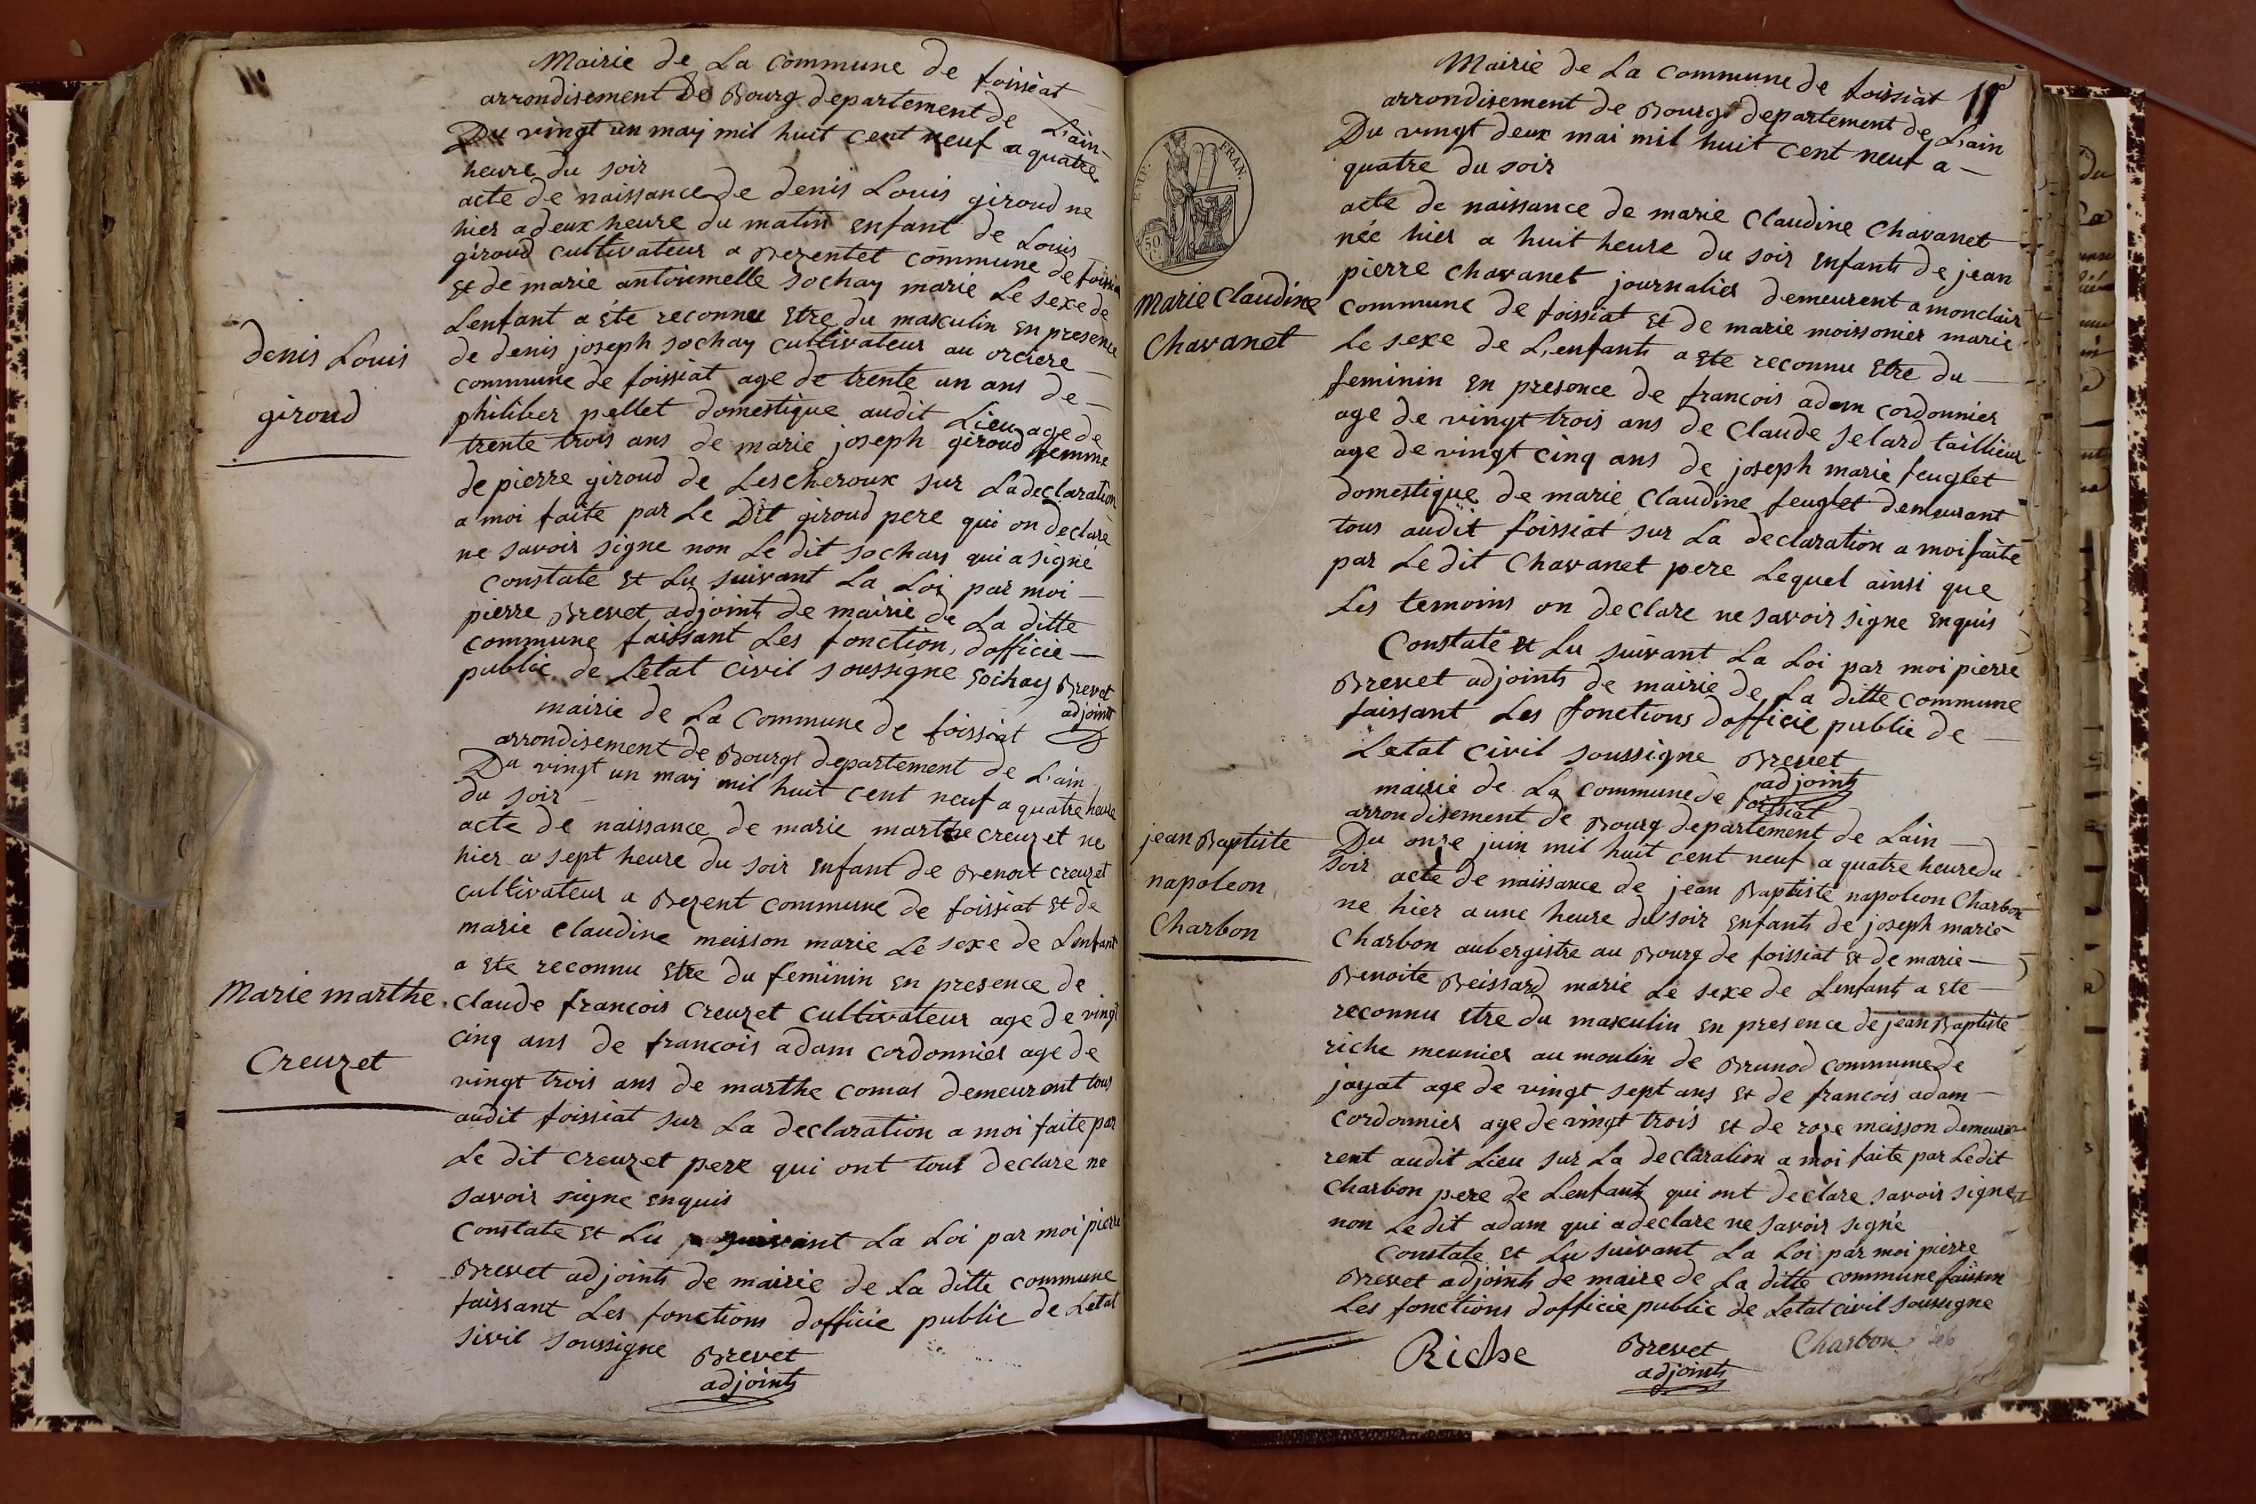 Mairie de La Commune de foissiat
arrondisement De Bourg departement de L'ain
Du vingt un may mil huit cent neuf a quatre
heure du soir
acte de naissance de denis Louis giroud ne
hier a deux heure du matin enfant de Louis
giroud cultivateur a Bezentet commune de foissia
et de marie antoinnelle sochay marie Le sexe de
Lenfant a éte reconnu etre du masculin en presence
de denis joseph sochay cultivateur au orciere
commune de foissiat age de trente un ans de
philiber pellet domestique audit Lieu age de
trente trois ans de marie joseph giroud femme
de pierre giroud de Lescheroux sur La declaration
a moi faite par Le Dit giroud pere qui on declare
ne savoir signe non Le dit sochay qui a signé
constate et Lu suivant La Loi par moi
pierre Brevet adjoints de mairie de La ditte
commune faissant Les fonction, dofficie
public de Letat civil soussigne Sochay Brevet
adjoints
denis Louis
giroud
mairie de La Commune de foissiat
arrondisement de Bourg departement de L'ain
Du vingt un may mil huit cent neuf a quatre heure
du soir
acte de naissance de marie marthe creuzet ne
hier a sept heure du soir enfant de Benoit creuzet
cultivateur a Bezent commune de foissiat et de
marie claudine meisson marie Le sexe de Lenfant
a ete reconnu etre du feminin en presence de
claude francois creuzet cultivateur age de vingt
cinq ans de francois adam cordonnier age de
vingt trois ans de marthe comas demeurent tous
audit foissiat sur La declaration a moi faite par
Le dit creuzet pere qui ont tous declare ne
savoir signe enquis
constate et Lu suivant La Loi par moi pierre
Brevet adjoints de mairie de La ditte commune
faissant Les fonctions dofficie public de Letat
sivil soussigne Brevet
adjoints
Marie marthe
Creuzet
Mairie de La Commune de foissiat
arrondisement de Bourg departement de L'ain
Du vingt deux mai mil huit cent neuf a
quatre du soir
acte de naissance de marie Claudine Chavanet
née hier a huit heure du soir enfants de jean
pierre chavanet journalier demeurent a monclair
commune de foissiat et de marie moissonier marie
Le sexe de L'enfants a ete reconnu etre du
feminin en presence de francois adam cordonnier
age de vingt trois ans de Claude selard taillieur
age de vingt cinq ans de joseph marie feuglet
domestique de marie Claudine feuglet demeurant
tous audit foissiat sur La declaration a moi faite
par Le dit Chavanet pere Lequel ainsi que
Les temoins on declare ne savoir signe enquis
Constate et Lu suivant La Loi par moi pierre
Brevet adjoints de mairie de La ditte commune
faissant Les fonctions dofficie public de
Letat civil soussigne Brevet
adjoints
EMP: FRAN.
50
C.
Marie Claudine
Chavanet
mairie de La commune de foissiat
arrondisement de Bourg departement de Lain
Du onze juin mil huit cent neuf a quatre heure du
soir acte de naissance de jean Baptiste napoleon Charbon
ne hier a une heure du soir enfants de joseph marie
Charbon aubergistre au Bourg de foissiat et de marie
Benoite Beissard marie Le sexe de Lenfants a ete
reconnu etre du masculin en presence de jean Baptiste
riche meunier au moulin de Brunod commune de
jayat age de vingt sept ans et de francois adam
cordonnier age de vingt trois et de roze meisson demeur
rent audit Lieu sur La declaration a moi faite par Ledit
charbon pere de Lenfants qui ont declare savoir signe
non Le dit adam qui a declare ne savoir signé
constate et Lu suivant La Loi par moi pierre
Brevet adjoints de maire de La ditte commune faissan
Les fonctions dofficie public de Letat civil soussigne
Riche Brevet Charbon
adjoints
jean Baptiste
napoleon
Charbon